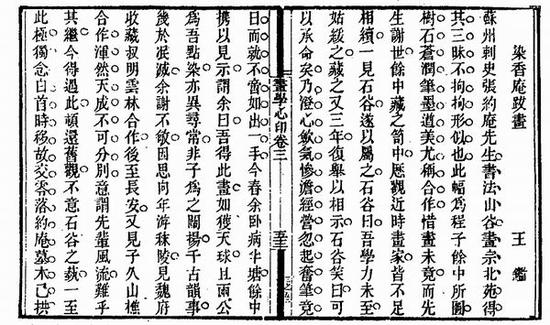 染香庵跋畫　王鑑
蘇州刺史張約庵先生書法山谷畫宗北苑得
其三昧不拘拘形似也此幅為程子餘中所圖
樹石蒼潤筆墨遒美尤稱合作惜畫未竟而先
生謝世餘中藏之笥中歷觀近時畫家皆不足
相續一見石谷遂以屬之石谷曰吾學力未至
姑緩之藏之又三年復舉以相示石谷笑曰可
以承命矣乃澄心歛氣慘澹經營忽起奮筆竟
畫學心印卷三
日而就不啻如出一手今春余臥病半塘餘中
攜以見示謂余曰吾得此畫如獲天球且兩公
為吾點染亦異尋常非子為之闡揚千古韻事
幾於泯滅余謝不敏因思向年游秣陵見魏府
收藏叔明雲林合作後至長安又見子久山樵
合作渾然天成不可分別意謂先輩風流難乎
其繼今得過此頓還舊觀不意石谷之蓺一至
此極獨念白首時移故交零落約庵墓木已拱